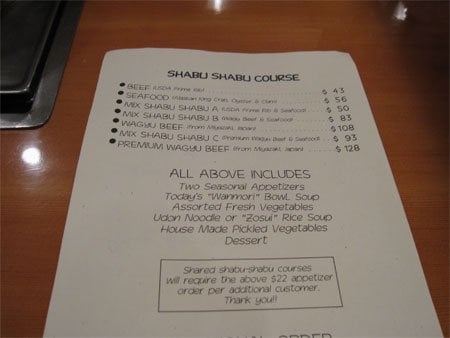 SHABU SHABU COURSE
● BEEF (USDA Prime Rib) $ 43
● SEAFOOD (Alaskan King Crab, Oyster & Clam) $ 56
● MIX SHABU SHABU A (USDA Prime Rib & Seafood) $ 50
● MIX SHABU SHABU B (Wagyu Beef & Seafood) $ 83
● WAGYU BEEF (From Miyazaki, Japan) $108
● MIX SHABU SHABU C (Premium Wagyu Beef & Seafood) $ 93
● PREMIUM WAGYU BEEF (From Miyazaki, Japan) $ 128
ALL ABOVE INCLUDES
Two Seasonal Appetizers
Today's "Wanmori" Bowl Soup
Assorted Fresh Vegetables
Udon Noodle or "Zosui" Rice Soup
House Made Pickled Vegetables
Dessert
Shared shabu-shabu courses
will require the above $22 appetizer
order per additional customer.
Thank you!!
ORDER